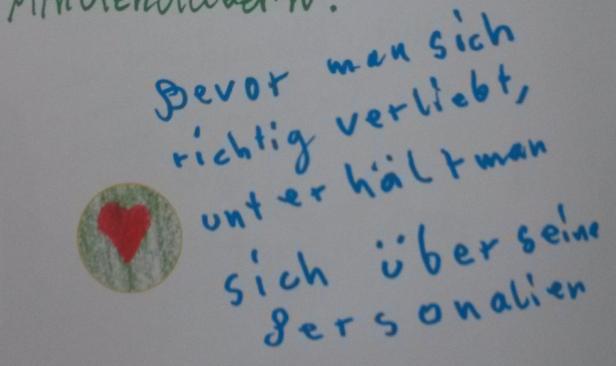 Bevor man sich
richtig verliebt,
unterhält man
sich über seine
Personalien